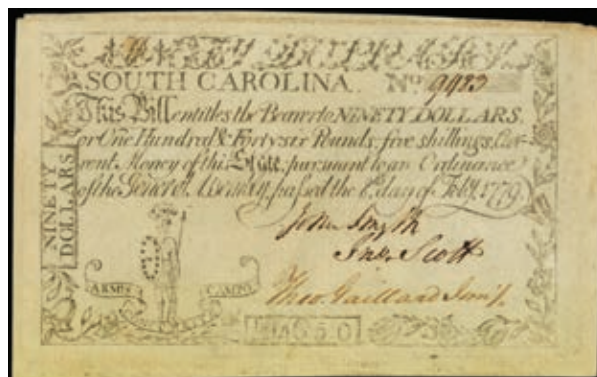 SOUTH CAROLINA. No. 9983
This Bill entitles the Bearer to NINETY DOLLARS,
or One Hundred & Forty six Pounds, five shillings, Cur-
rent Money of this State, pursuant to an Ordinance
of the General Assembly, passed the day of Feb. 1779.
NINETY
DOLLARS
John Smyth
Jno. Scott
Theo. Gaillard Junr.